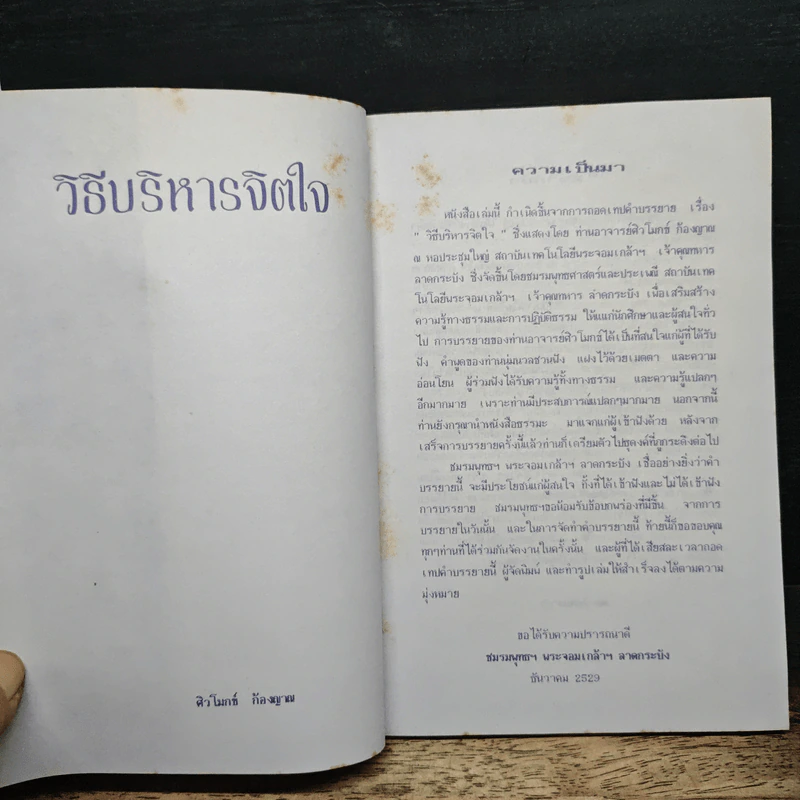 วิธีบริหารจิตใจ
ศิวโมกข์ ก้องญาณ
ความเป็นมา
หนังสือเล่มนี้ กำเนิดขึ้นจากการถอดเทปคำบรรยาย เรื่อง
" วิธีบริหารจิตใจ " ซึ่งแสดงโดย ท่านอาจารย์ศิวโมกข์ ก้องญาณ
ณ หอประชุมใหญ่ สถาบันเทคโนโลยีพระจอมเกล้าฯ เจ้าคุณทหาร
ลาดกระบัง ซึ่งจัดขึ้นโดยชมรมพุทธศาสตร์และประเพณี สถาบันเทค
โนโลยีพระจอมเกล้าฯ เจ้าคุณทหาร ลาดกระบัง เพื่อเสริมสร้าง
ความรู้ทางธรรมและการปฏิบัติธรรม ให้แก่นักศึกษาและผู้สนใจทั่ว
ไป การบรรยายของท่านอาจารย์ศิวโมกข์ได้เป็นที่สนใจแก่ผู้ที่ได้รับ
ฟัง คำพูดของท่านนุ่มนวลชวนฟัง แฝงไว้ด้วยเมตตา และความ
อ่อนโยน ผู้ร่วมฟังได้รับความรู้ทั้งทางธรรม และความรู้แปลกๆ
อีกมากมาย เพราะท่านมีประสบการณ์แปลกๆมากมาย นอกจากนี้
ท่านยังกรุณานำหนังสือธรรมะ มาแจกแก่ผู้เข้าฟังด้วย หลังจาก
เสร็จการบรรยายครั้งนี้แล้วท่านก็เตรียมตัวไปธุดงค์ที่ภูกระดึงต่อไป
ชมรมพุทธฯ พระจอมเกล้าฯ ลาดกระบัง เชื่ออย่างยิ่งว่าคำ
บรรยายนี้ จะมีประโยชน์แก่ผู้สนใจ ทั้งที่ได้เข้าฟังและไม่ได้เข้าฟัง
การบรรยาย ชมรมพุทธฯขอน้อมรับข้อบกพร่องที่มีขึ้น จากการ
บรรยายในวันนั้น และในการจัดทำคำบรรยายนี้ ท้ายนี้ก็ขอขอบคุณ
ทุกๆท่านที่ได้ร่วมกันจัดงานในครั้งนั้น และผู้ที่ได้เสียสละเวลาถอด
เทปคำบรรยายนี้ ผู้จัดพิมพ์ และทำรูปเล่มให้สำเร็จลงได้ตามความ
มุ่งหมาย
ขอได้รับความปรารถนาดี
ชมรมพุทธฯ พระจอมเกล้าฯ ลาดกระบัง
ธันวาคม 2529